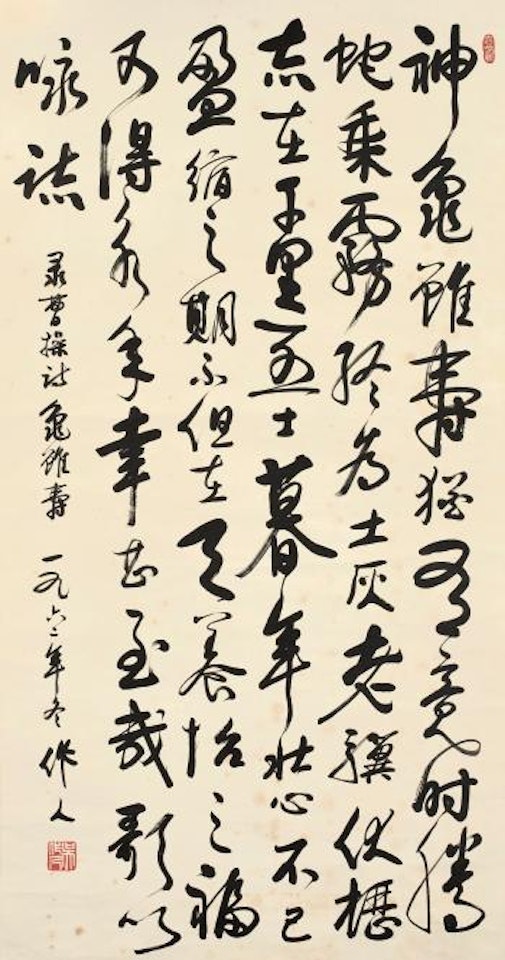 神龜雖壽猶有竟时騰
蛇乘霧終為土灰老驥伏櫪
志在千里烈士暮年壯心不已
盈縮之期不但在天養怡之福
可得永年幸甚至哉歌以
咏誌
录曹操詩龜雖壽 一九六二年冬 作人